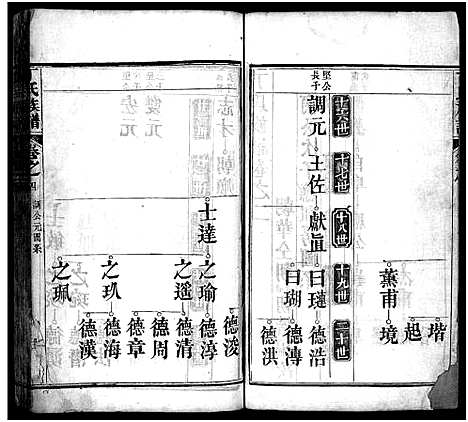 堦
起
薰甫 境
十六世 十七世 十八世 十九世 二十世
聖公長子
調元 士佐 獻直 曰璉 德浩
德溥
曰瑚 德洪
德浚
士達 之瑜 德淳
之遥 德清
德周
德章
之玖 德海
之珮 德漢
氏族譜
卷之
四
調公元圖系